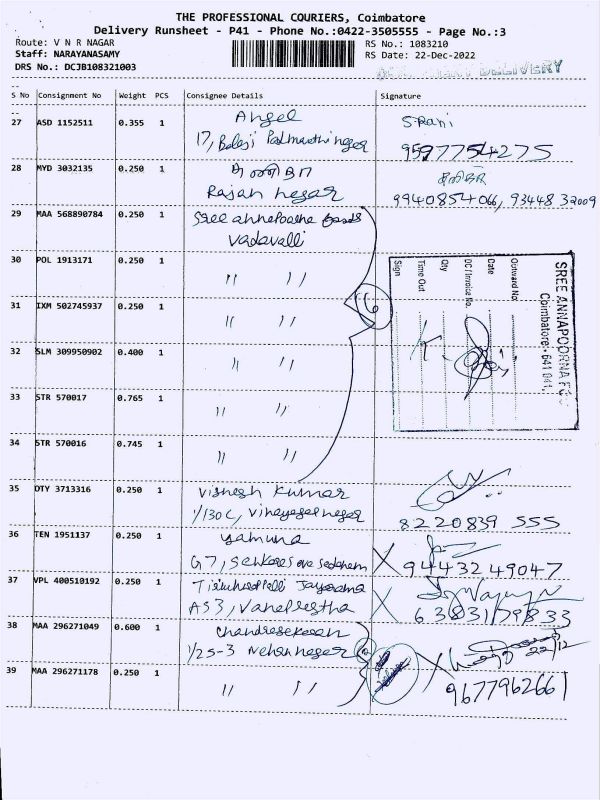 THE PROFESSIONAL COURIERS, Coimbatore
Delivery Runsheet - P41 - Phone No.:0422-3505555 - Page No.:3
Route: V N R NAGAR
RS No.: 1083210
Staff: NARAYANASAMY
RS Date: 22-Dec-2022
DRS No.: DCJB108321003
DELIVERY
S No Consignment No Weight PCS Consignee Details Signature
27 ASD 1152511 0.355 1 Angel S.Rani
17, Balaji Padmavathi nagar 9597754275
28 MYD 3032135 0.250 1
Rajan nagar 9940854066, 93448 32009
29 MAA 568890784 0.250 1 Sree annapoorna foods
Vadavalli
30 POL 1913171 0.250 1 " "
31 IXM 502745937 0.250 1 " " 6
32 SLM 309950902 0.400 1 " "
33 STR 570017 0.765 1 " "
34 STR 570016 0.745 1 " "
SREE ANNAPOORNA
Coimbatore - 641 041.
Outward No
Date
DC / Invoice No.
Qty
Time Out
Sign
35 DTY 3713316 0.250 1 Vishesh Kumar
1/130 C, Vinayagar nagar 8220839 555
36 TEN 1951137 0.250 1 Yamuna
G7, 9443249047
37 VPL 400510192 0.250 1
AS3, Vanaprastha 6383179833
38 MAA 296271049 0.600 1 Chandrasekaran
1/25-3 Nehru nagar 22/12
39 MAA 296271178 0.250 1 " " 9677962661